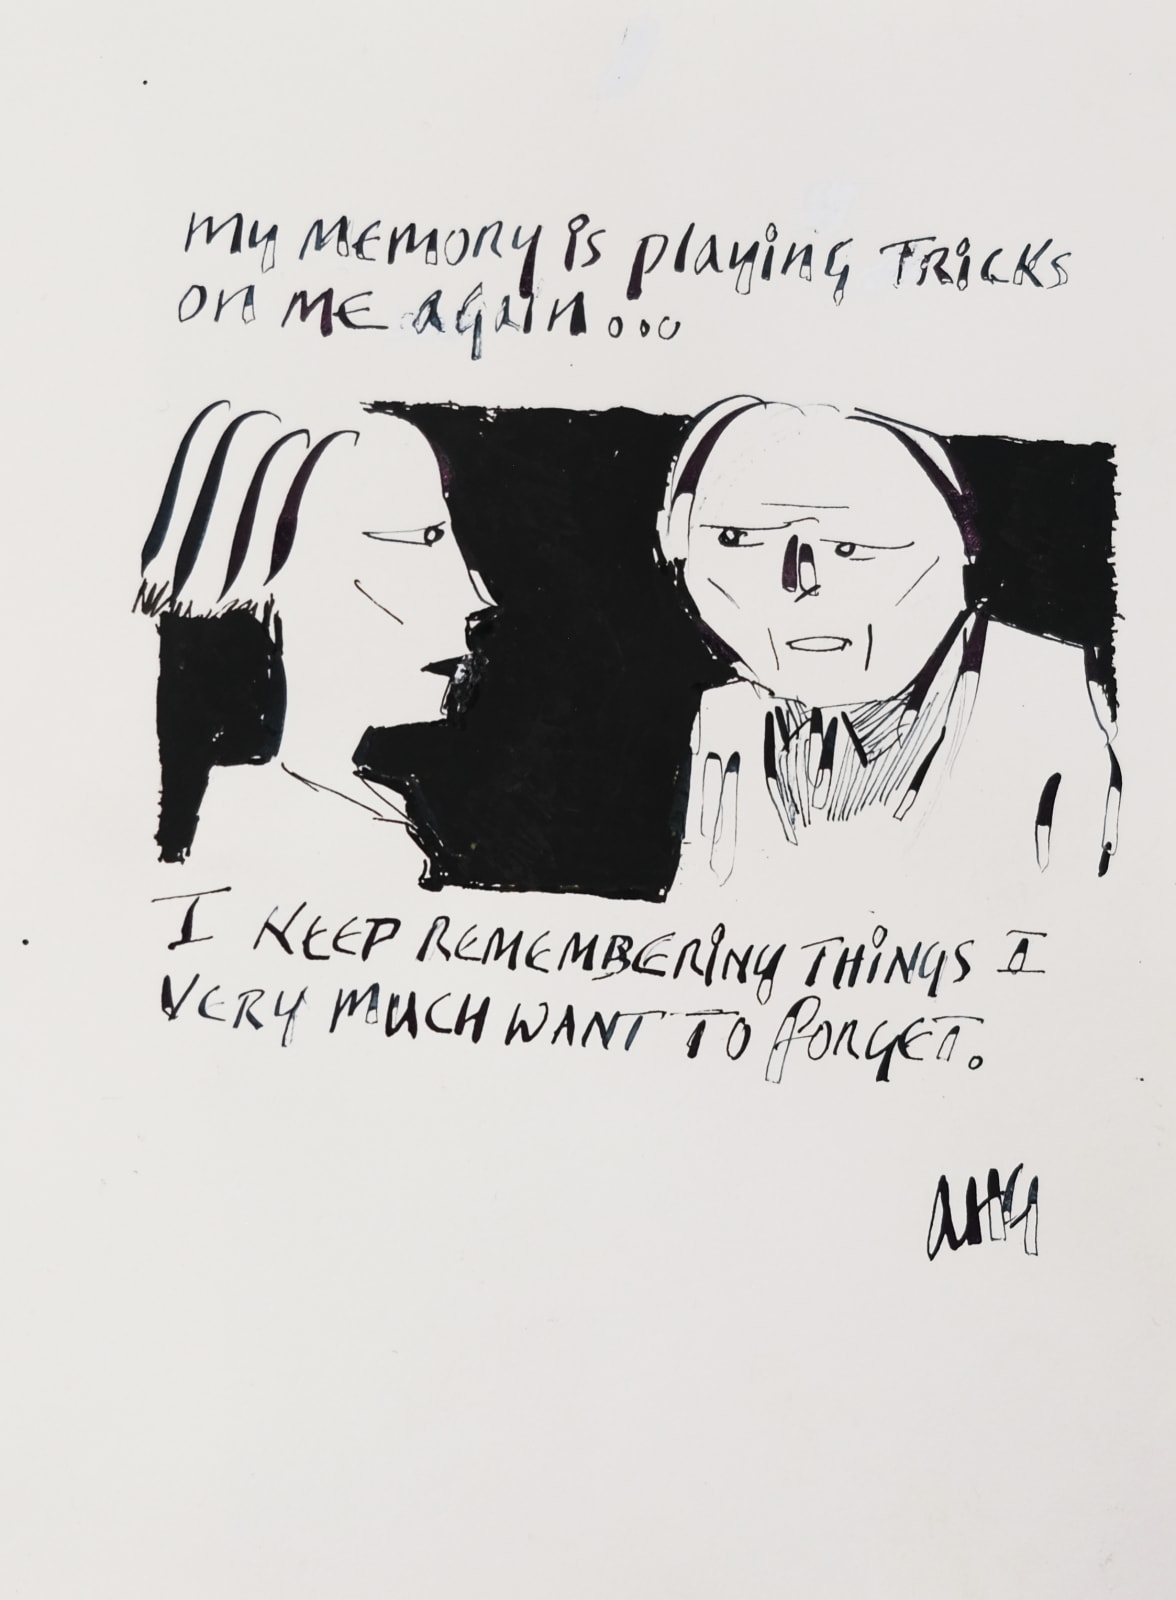 My MEMORY is playing TRicKs
on ME again...
I KEEP REMEMBERiNg THiNgS I
VERY MUCH WANT TO forgET.